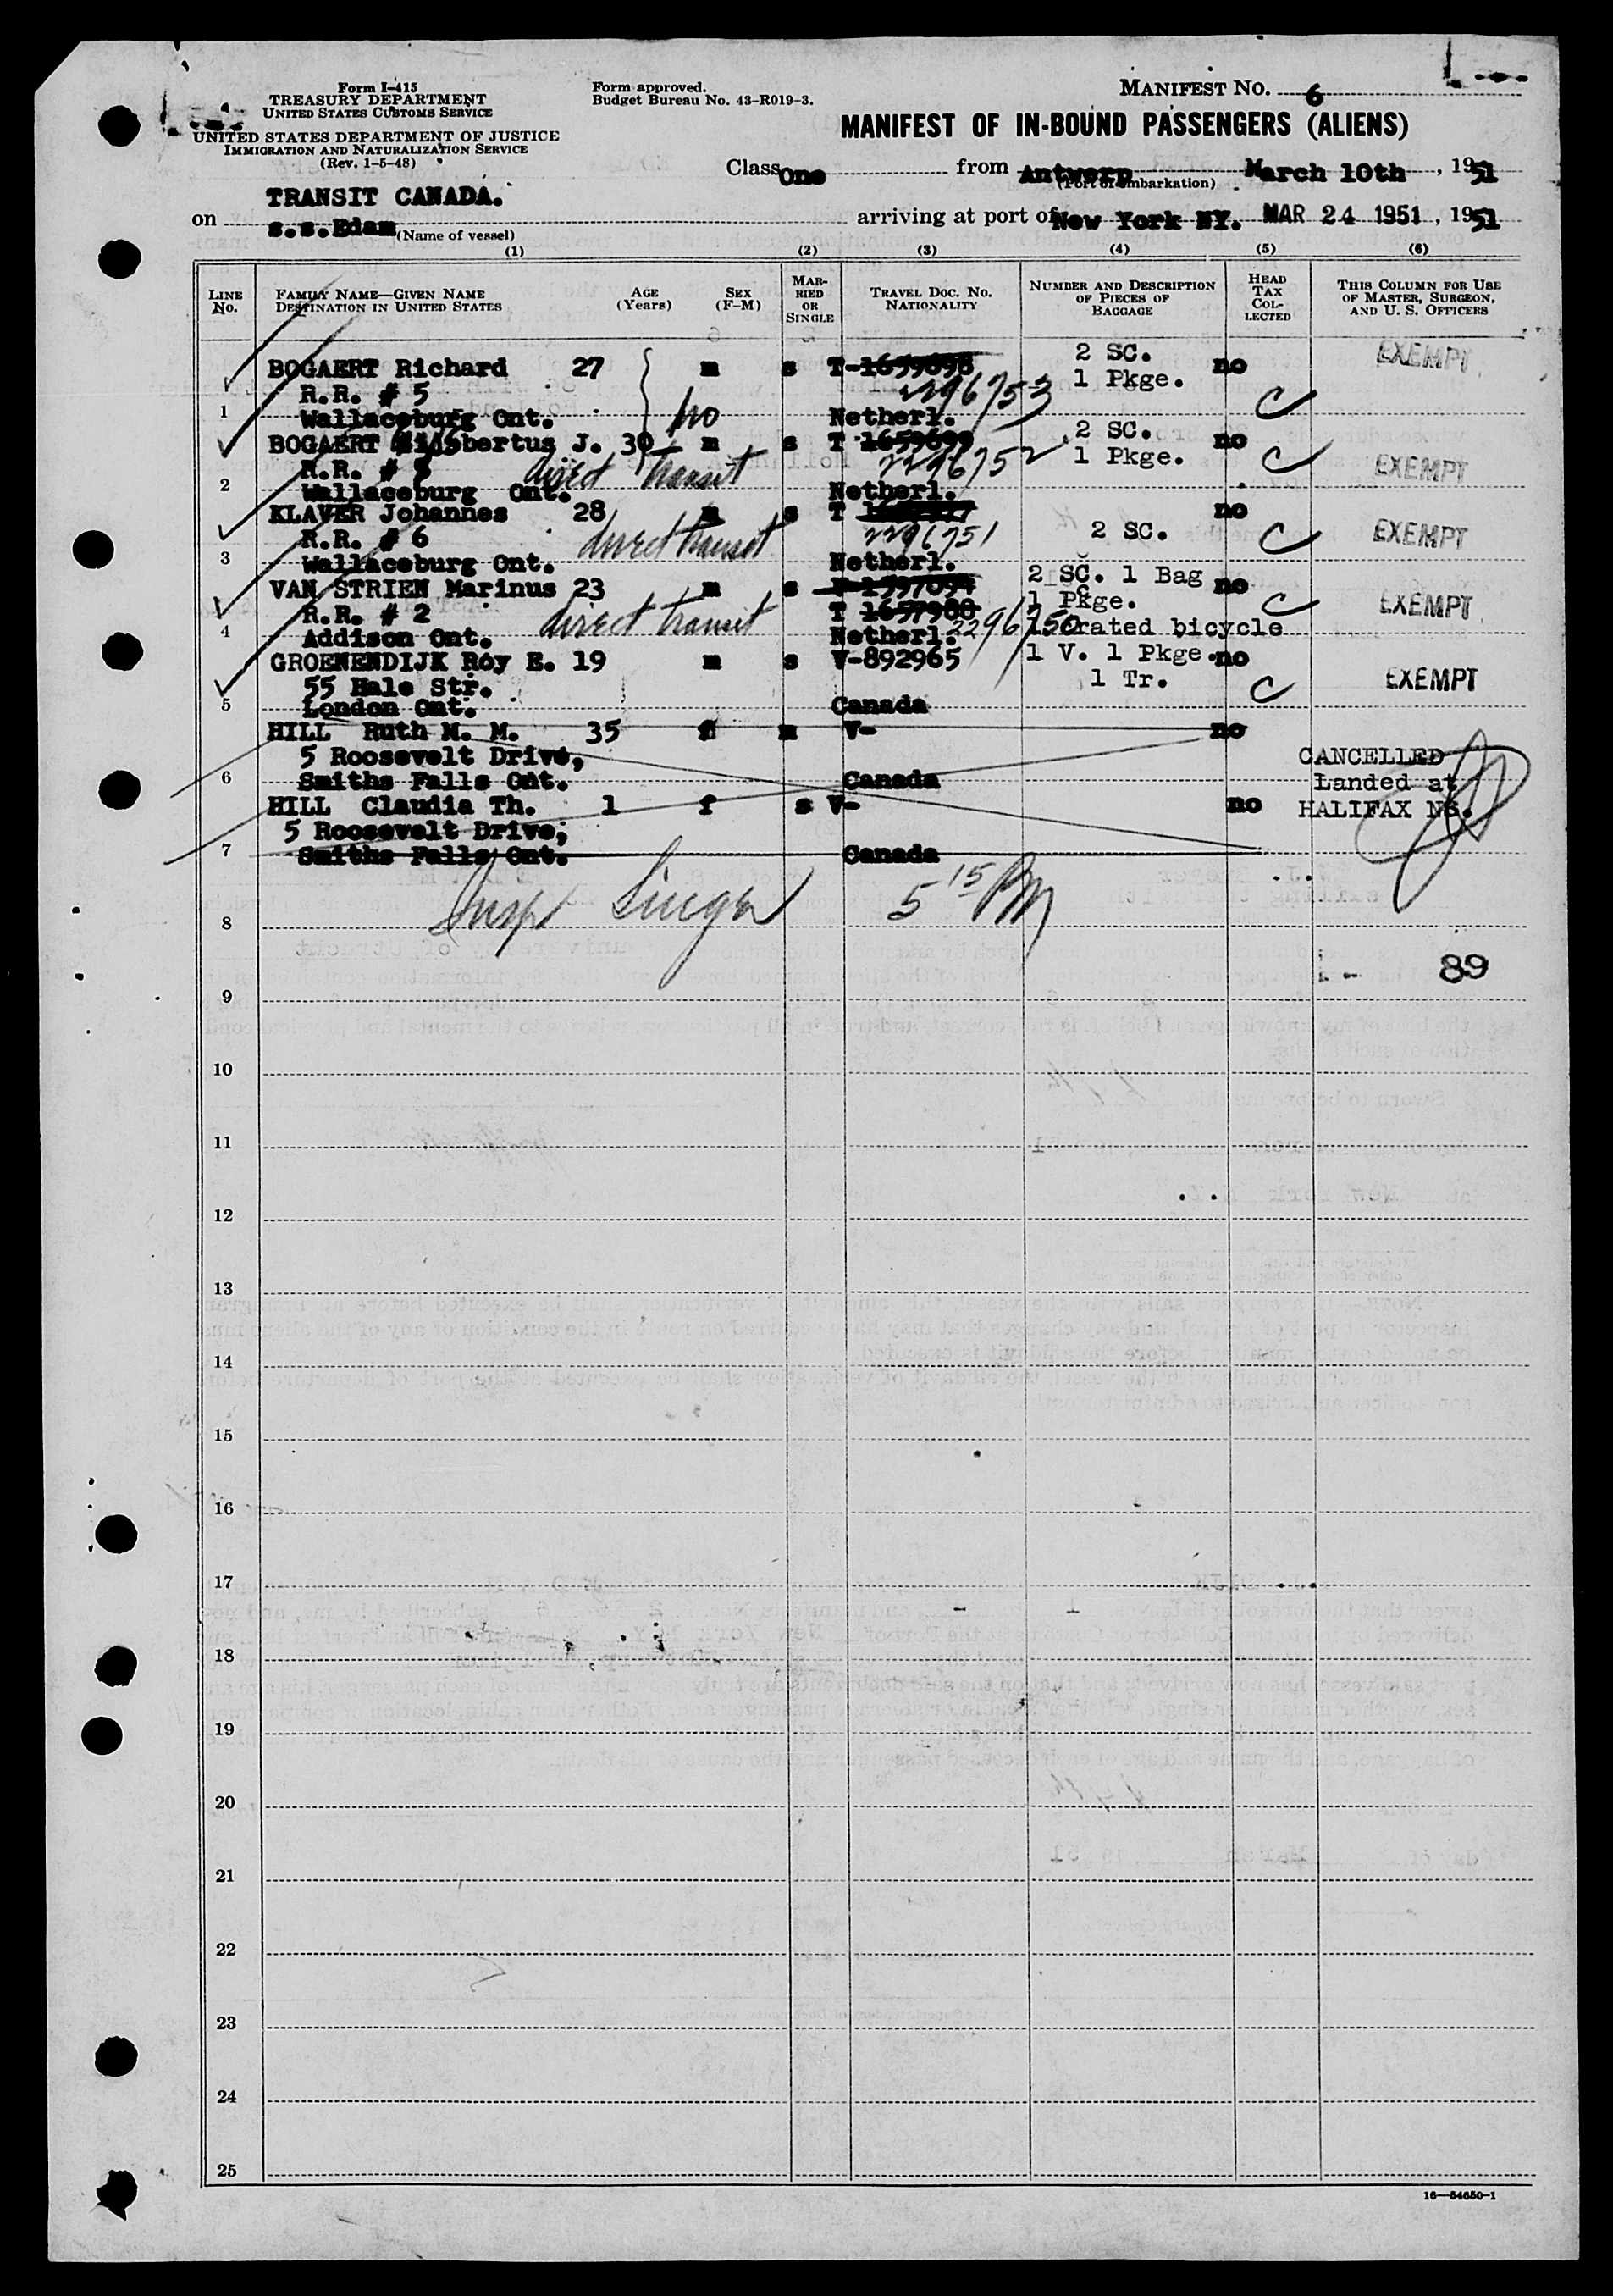 Form I-415
TREASURY DEPARTMENT
UNITED STATES CUSTOMS SERVICE
UNITED STATES DEPARTMENT OF JUSTICE
IMMIGRATION AND NATURALIZATION SERVICE
(Rev. 1-5-48)
Form approved.
Budget Bureau No. 43-R019-3.
MANIFEST NO. 6
MANIFEST OF IN-BOUND PASSENGERS (ALIENS)
Class One from Antwerp March 10th, 1951
(Port of embarkation)
TRANSIT CANADA.
on s.s.Edam arriving at port of New York NY. MAR 24 1951, 1951
(Name of vessel)
(1) (2) (3) (4) (5) (6)
LINE NO. FAMILY NAME—GIVEN NAME DESTINATION IN UNITED STATES AGE (Years) SEX (F-M) MARRIED OR SINGLE TRAVEL DOC. NO. NATIONALITY NUMBER AND DESCRIPTION OF PIECES OF BAGGAGE HEAD TAX COLLECTED THIS COLUMN FOR USE OF MASTER, SURGEON, AND U. S. OFFICERS
BOGAERT Richard 27 m s T-1659698 2 SC. no EXEMPT
R.R. # 5 2296753 1 Pkge.
1 Wallaceburg Ont. no Netherl. C
BOGAERT bertus J. 30 m s T 1659699 2 SC. no
R.R. # direct transit 2296752 1 Pkge. C EXEMPT
2 Wallaceburg Ont. Netherl.
KLAVER Johannes 28 m s T no
R.R. # 6 direct transit 2296751 2 SC. C EXEMPT
3 Wallaceburg Ont. Netherl.
VAN STRIEN Marinus 23 m s 2 SC. 1 Bag no
R.R. # 2 direct transit T 1657980 1 Pkge. C EXEMPT
4 Addison Ont. Netherl. 2296750 1 Crated bicycle
GROENENDIJK Roy E. 19 m s V-892965 1 V. 1 Pkge. no
55 Hale Str. 1 Tr. C EXEMPT
5 London Ont. Canada
HILL Ruth M. M. 35 f m V- no
5 Roosevelt Drive, CANCELLED
6 Smiths Falls Ont. Canada Landed at
HILL Claudia Th. 1 f s V- no HALIFAX NS.
5 Roosevelt Drive,
7 Smiths Falls Ont. Canada
8 Insp Singer 5 15 PM
89
9
10
11
12
13
14
15
16
17
18
19
20
21
22
23
24
25
16—54650-1